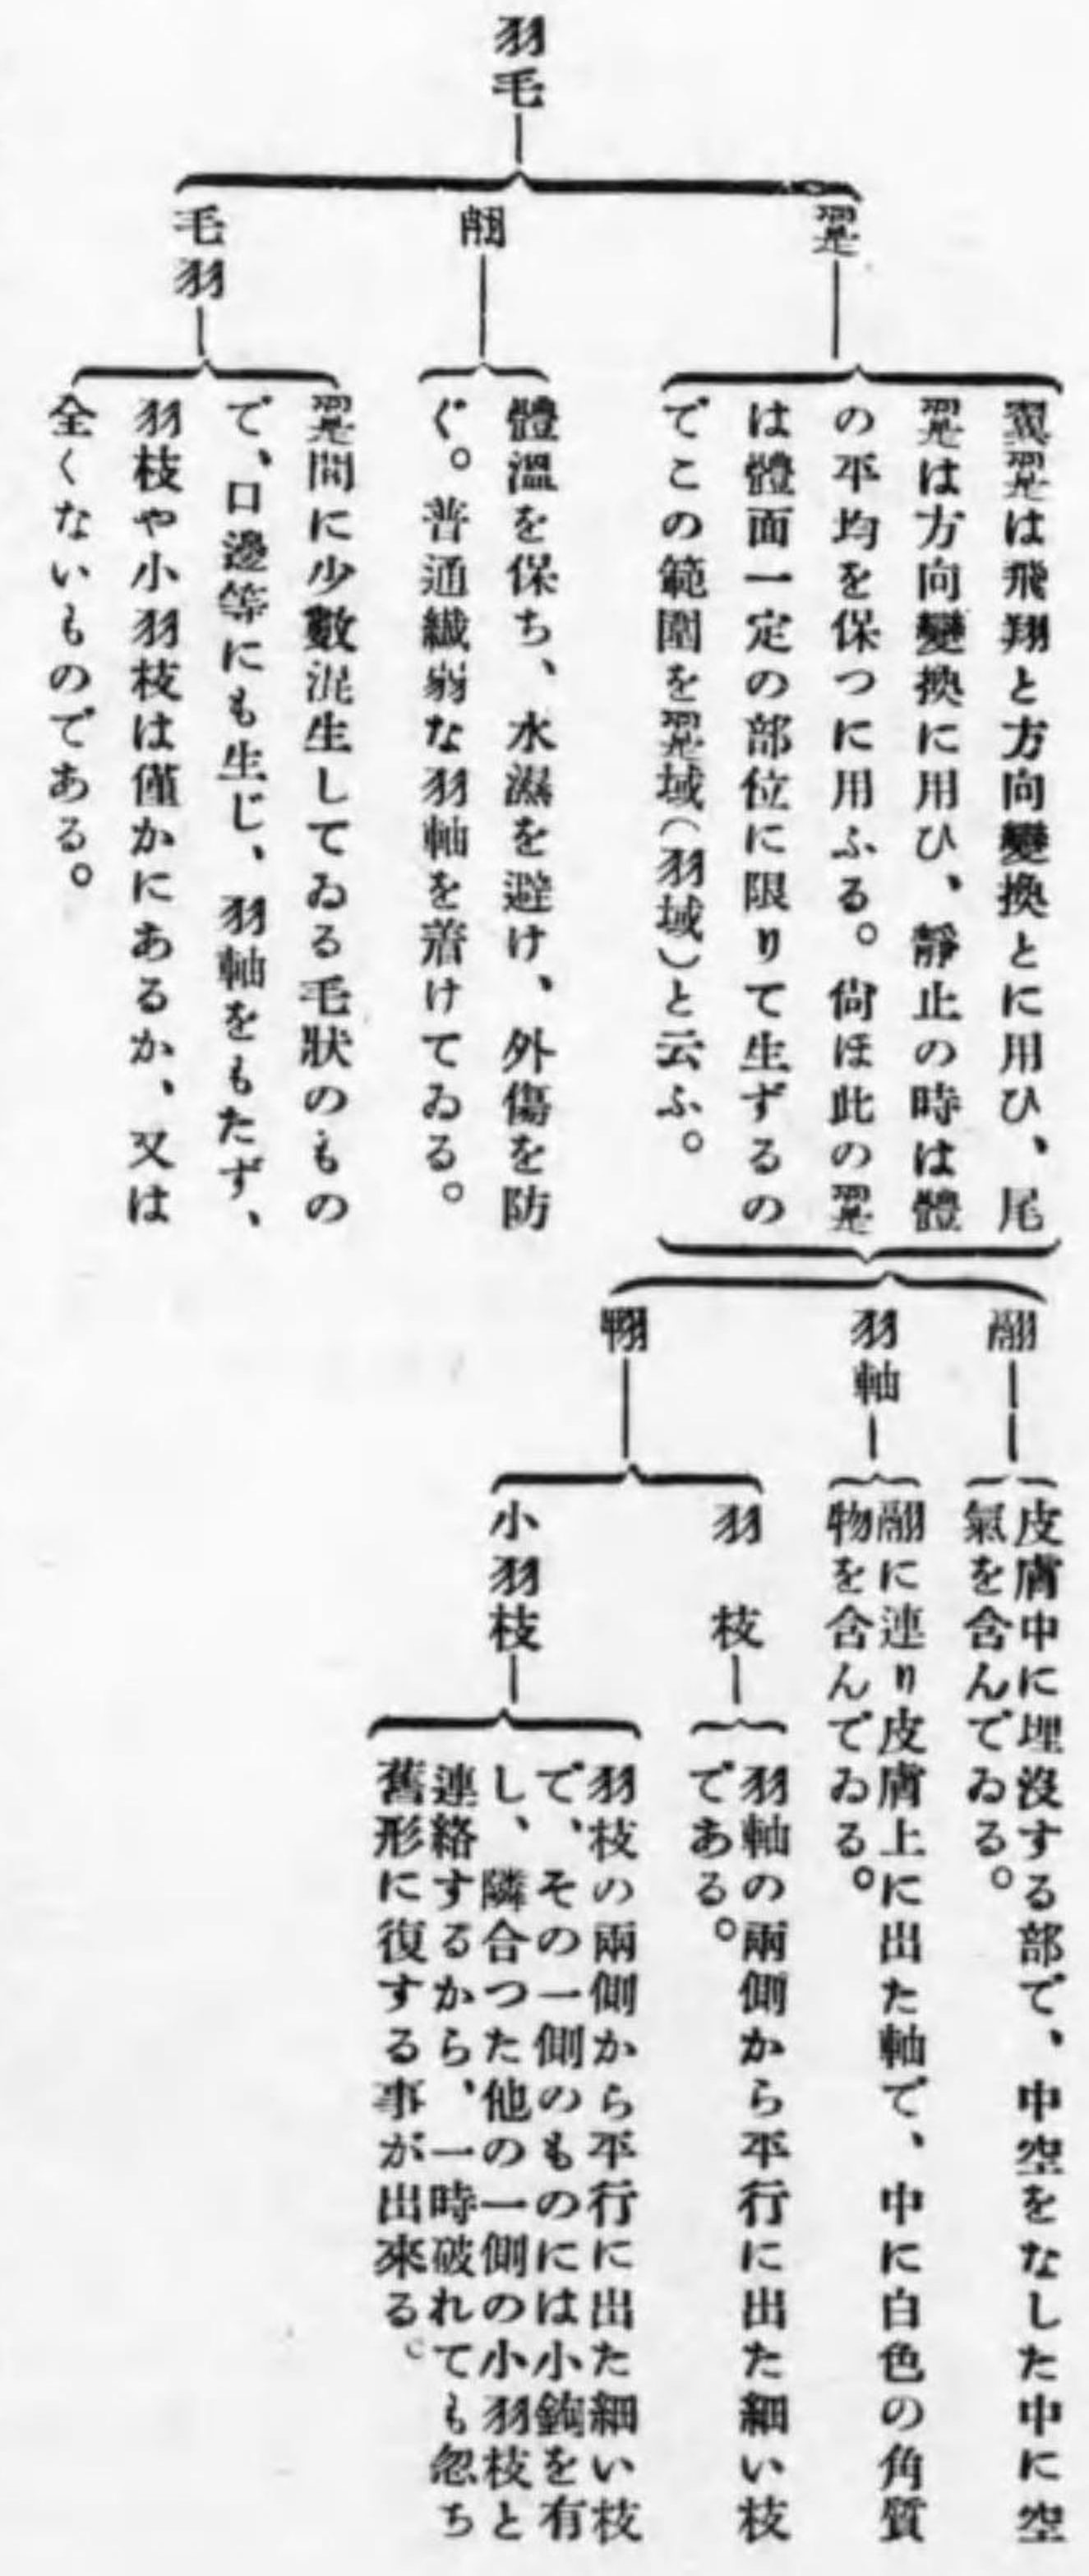 羽毛
翨
翼翨は飛翔と方向變換とに用ひ、尾
翨は方向變換に用ひ、靜止の時は體
の平均を保つに用ふる。尙ほ此の翨
は體面一定の部位に限りて生ずるの
でこの範圍を翨域(羽域)と云ふ。
翮
皮膚中に埋沒する部で、中空をなした中に空
氣を含んでゐる。
羽軸
翮に連り皮膚上に出た軸で、中に白色の角質
物を含んでゐる。
翈
羽枝
羽軸の兩側から平行に出た細い枝
である。
小羽枝
羽枝の兩側から平行に出た細い枝
で、その一側のものには小鉤を有
し、隣合つた他の一側の小羽枝と
連絡するから、一時破れても忽ち
舊形に復する事が出來る。
體溫を保ち、水濕を避け、外傷を防
ぐ。普通纎弱な羽軸を着けてゐる。
毛羽
翨間に少數混生してゐる毛狀のもの
で、口邊等にも生じ、羽軸をもたず、
羽枝や小羽枝は僅かにあるか、又は
全くないものである。